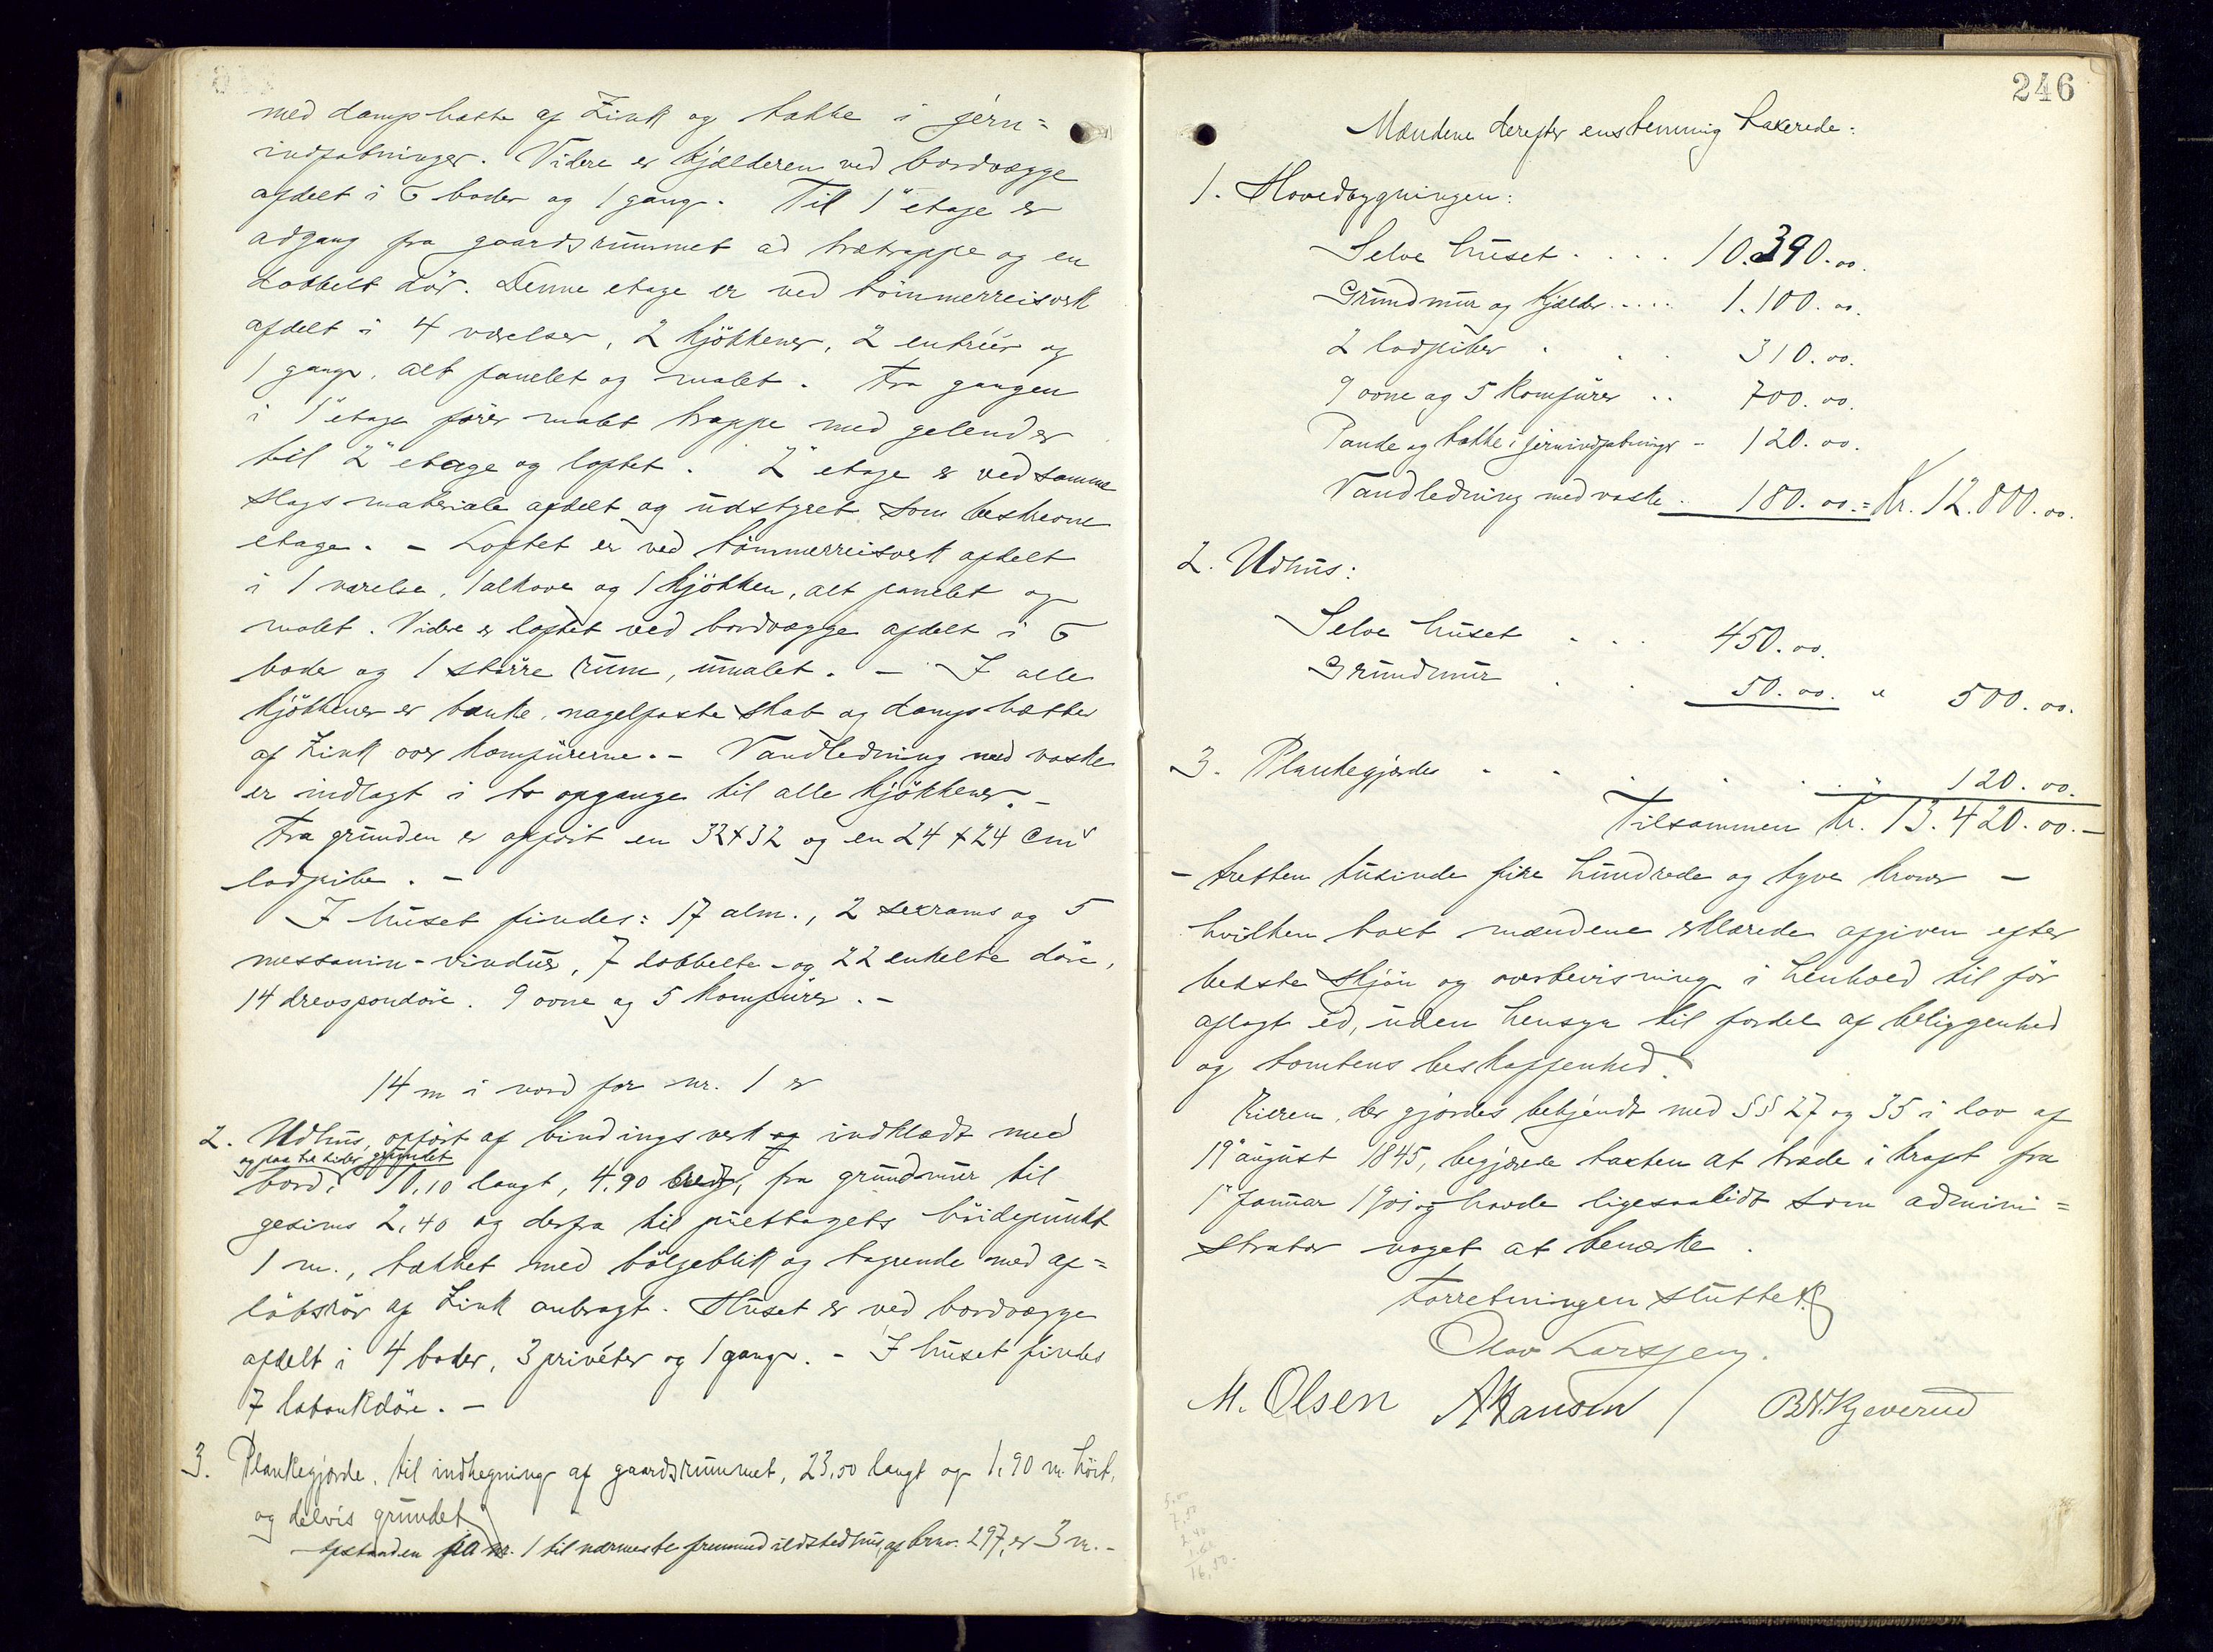 med damphætte af Zink og takke i jern=
indfatninger. Videre er kjælderen ved bordvægge
afdelt i 6 boder og 1 gang. Til 1" etage er
adgang fra gaardsrummet ad trætrappe og en
dobbelt dör. Denne etage er ved tömmerreisverk
afdelt i 4 værelser, 2 kjökkener, 2 entréer og
1 gang, alt panelet og malet. Fra gangen
i 1" etage förer malet trappe med gelender
til 2" etage og loftet. 2" etage er ved samme
slags materiale afdelt og udstyret som beskrevne
etage. - Loftet er ved tömmerreisverk afdelt
i 1 værelse, 1 alkove og 1 kjökken, alt panelet og
malet. Videre er loftet ved bordvægge afdelt i 6
boder og 1 större rum, umalet. - I alle
kjökkener er bænke, nagelfaste skab og damphætter
af Zink over komfurerne. - Vandledning med vaske
er indlagt i to opgange til alle kjökkener. -
Fra grunden er opfört en 32 x 32 og en 24 x 24 cm
lodpibe. -
I huset findes: 17 alm., 2 sexrams og 5
messanin-vinduer, 7 dobbelte- og 22 enkelte döre,
14 drevspondöre. 9 ovne og 5 komfurer. -
14 m i nord for nr. 1 er
2. Udhus, opfört af bindingsverk og indklædt med
og paa tre sider grundet
bord, 10,10 langt, 4,90 bredt, fra grundmur til
gesims 2,40 og derfra til pulttagets höidepunkt
1 m., tækket med bölgeblik og tagrende med af=
löbsrör af Zink anbragt. Huset er ved bordvægge
afdelt i 4 boder, 3 privéter og 1 gang. - I huset findes
7 labankdöre. -
3. Plankegjærde, til indhegning af gaardsrummet, 23,50 langt og 1,90 m. höit,
og delvis grundet
Afstanden fra nr. 1 til nærmeste fremmed ildstedhus, af brnr. 297, er 3 m. -
246
Mændene derefter enstemmig taxerede:
1. Hovedbygningen:
Selve huset . . . . 10.390.00.
Grundmur og kjælder . . . . . 1.100.00.
2 lodpiber . . . 310.00.
9 ovne og 5 komfurer . . 700.00.
Pande og takke i jernindfatninger - 120.00.
Vandledning med vaske . 180.00. = Kr. 12.800.00.
2. Udhus:
Selve huset . . . 450.00.
Grundmur . . 50.00. " 500.00.
3. Plankegjærde . . . . . " 120.00.
Tilsammen Kr. 13.420.00. -
- tretten tusinde fire hundrede og tyve kroner -
hvilken taxt mændene erklærede afgiven efter
bedste skjön og overbevisning i henhold til för
aflagt ed, uden hensyn til fordel af beliggenhed
og tomtens beskaffenhed.
Eieren, der gjordes bekjendt med §§ 27 og 35 i lov af
19" august 1845, begjærede taxten at træde i kraft fra
1" januar 1901 og havde ligesaalidt som admini=
strator noget at bemærke.
Forretningen sluttet.
Olav Larssen.
M. Olsen A Hansen / B. N. Kjeverud
16,50.